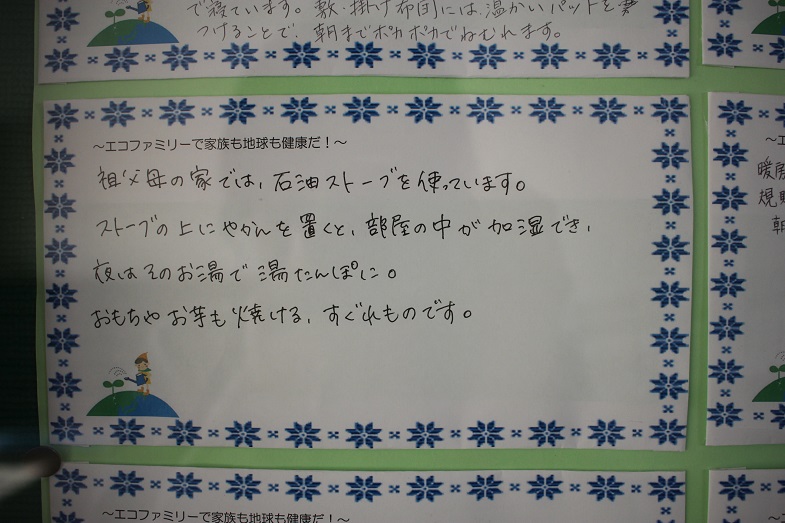 で寝ています。敷・掛け布団には、温かいパットを
つけることで、朝までポカポカでねむれます。
～エコファミリーで家族も地球も健康だ！～
祖父母の家では、石油ストーブを使っています。
ストーブの上にやかんを置くと、部屋の中が加湿でき、
夜はそのお湯で湯たんぽに。
おもちゃお芋も焼ける、すぐれものです。
～エ
暖房
規
朝
～エコファミリーで家族も地球も健康だ！～